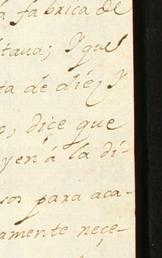 la fabrica de
ctava; Y que
ta de die; Y
o, dice que
yen á la di-
sos para aca-
amente neçe-